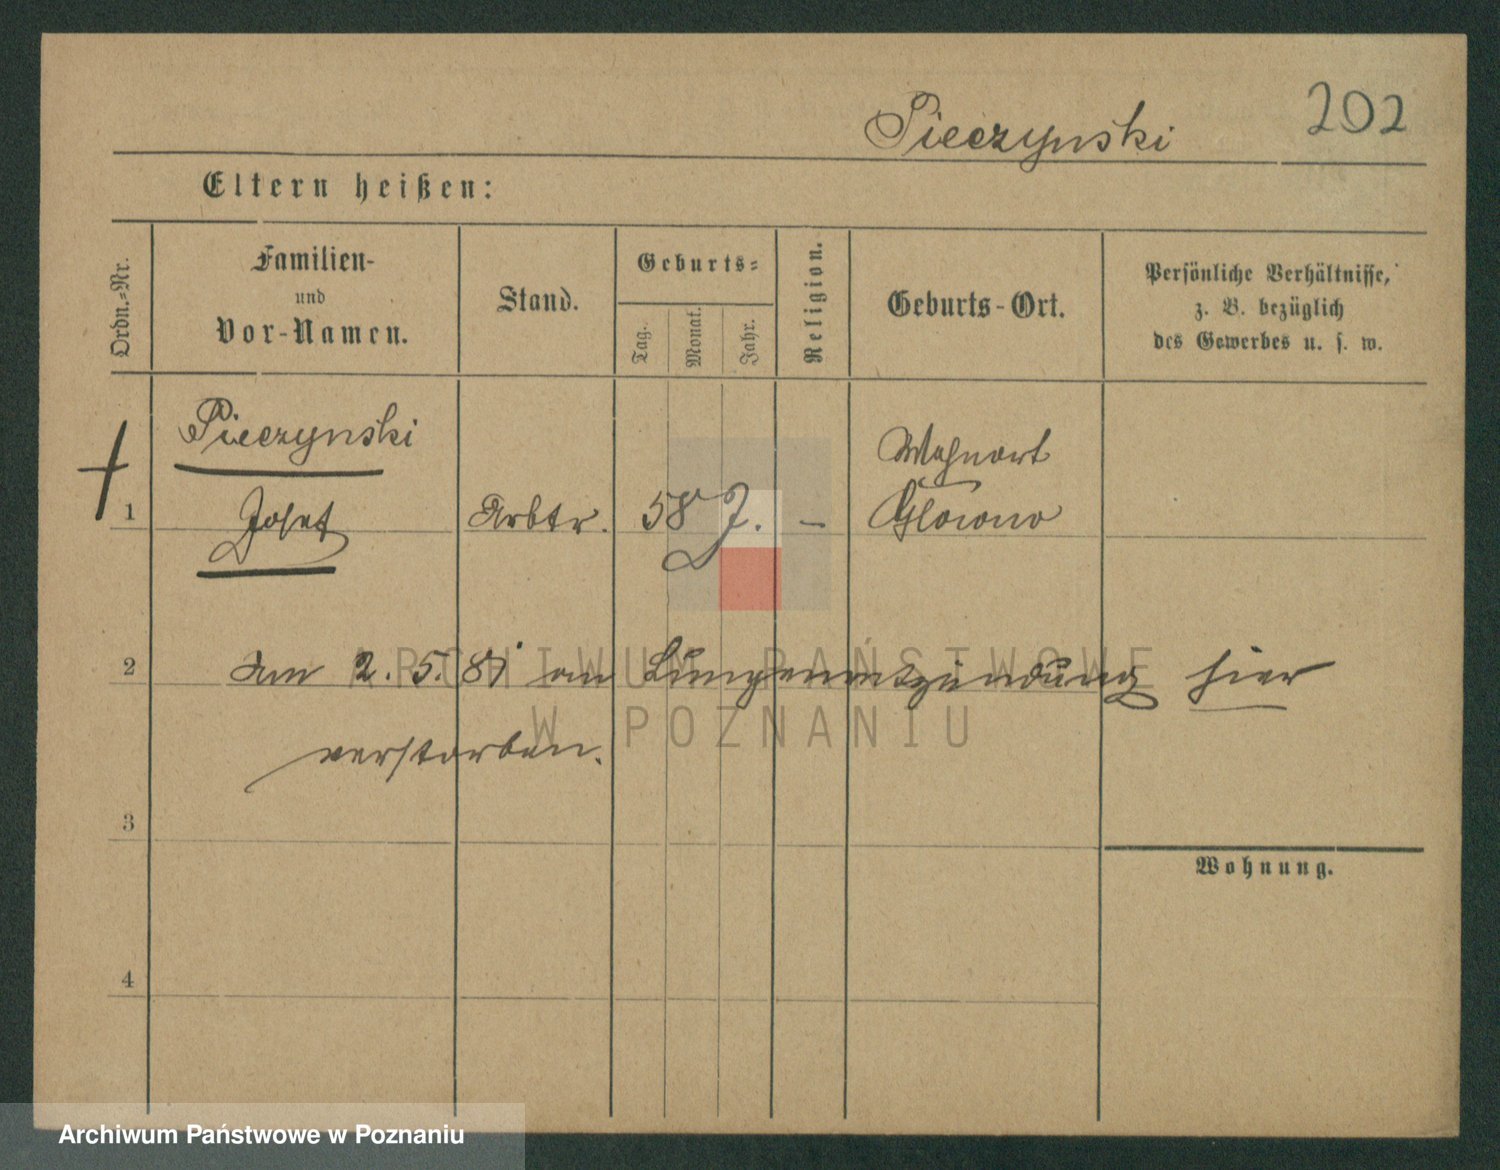 Pieczynski 202
Eltern heißen:
Ordn.-Nr.
Familien-
und
Vor-Namen.
Stand.
Geburts-
Tag.
Monat.
Jahr.
Religion.
Geburts-Ort.
Persönliche Verhältnisse,
z. B. bezüglich
des Gewerbes u. s. w.
Pieczynski
1 Josef Arbtr. 58 J. – Wohnort
Glowno
2 Am 2. 5. 81 an Lungenentzündung hier
verstorben.
ARCHIWUM PAŃSTWOWE
W POZNANIU
3
Wohnung.
4
Archiwum Państwowe w Poznaniu